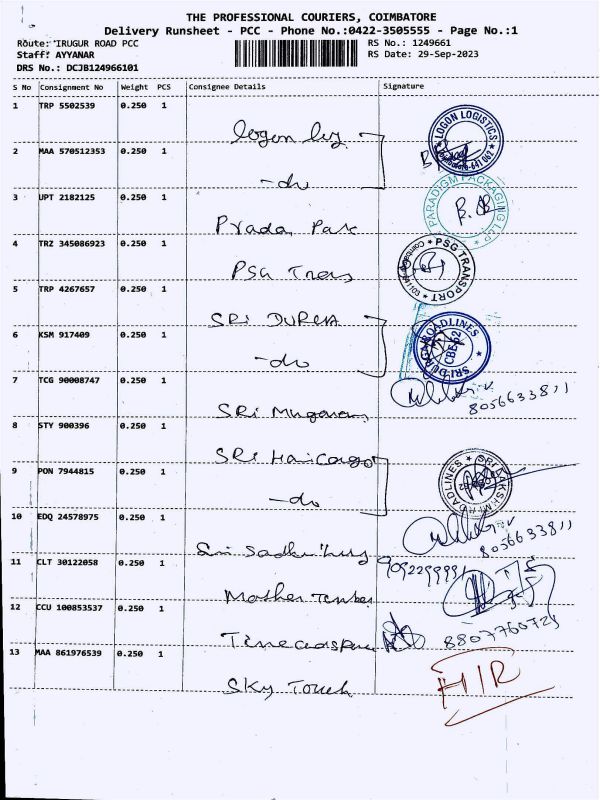 THE PROFESSIONAL COURIERS, COIMBATORE
Delivery Runsheet - PCC - Phone No.:0422-3505555 - Page No.:1
Route: IRUGUR ROAD PCC RS No.: 1249661
Staff: AYYANAR RS Date: 29-Sep-2023
DRS No.: DCJB124966101
S No Consignment No Weight PCS Consignee Details Signature
1 TRP 5502539 0.250 1
LOGON LOGISTICS
logon log
2 MAA 570512353 0.250 1
-do
PARADIGM PACKAGING LLP
3 UPT 2182125 0.250 1
R.B
4 TRZ 345086923 0.250 1
PSG TRANSPORT
PSG Trans
5 TRP 4267657 0.250 1
SRI DURGA
SRI DURGA ROADLINES
CBE-62
6 KSM 917409 0.250 1
-do
7 TCG 90008747 0.250 1
8056633811
SRI Murugan
8 STY 900396 0.250 1
SRI Hari Cargo
ROADLINES
9 PON 7944815 0.250 1
-do
10 EDQ 24578975 0.250 1
8056633811
Sri
11 CLT 30122058 0.250 1
Mother
12 CCU 100853537 0.250 1
8807760721
13 MAA 861976539 0.250 1
SKY Touch
H/R